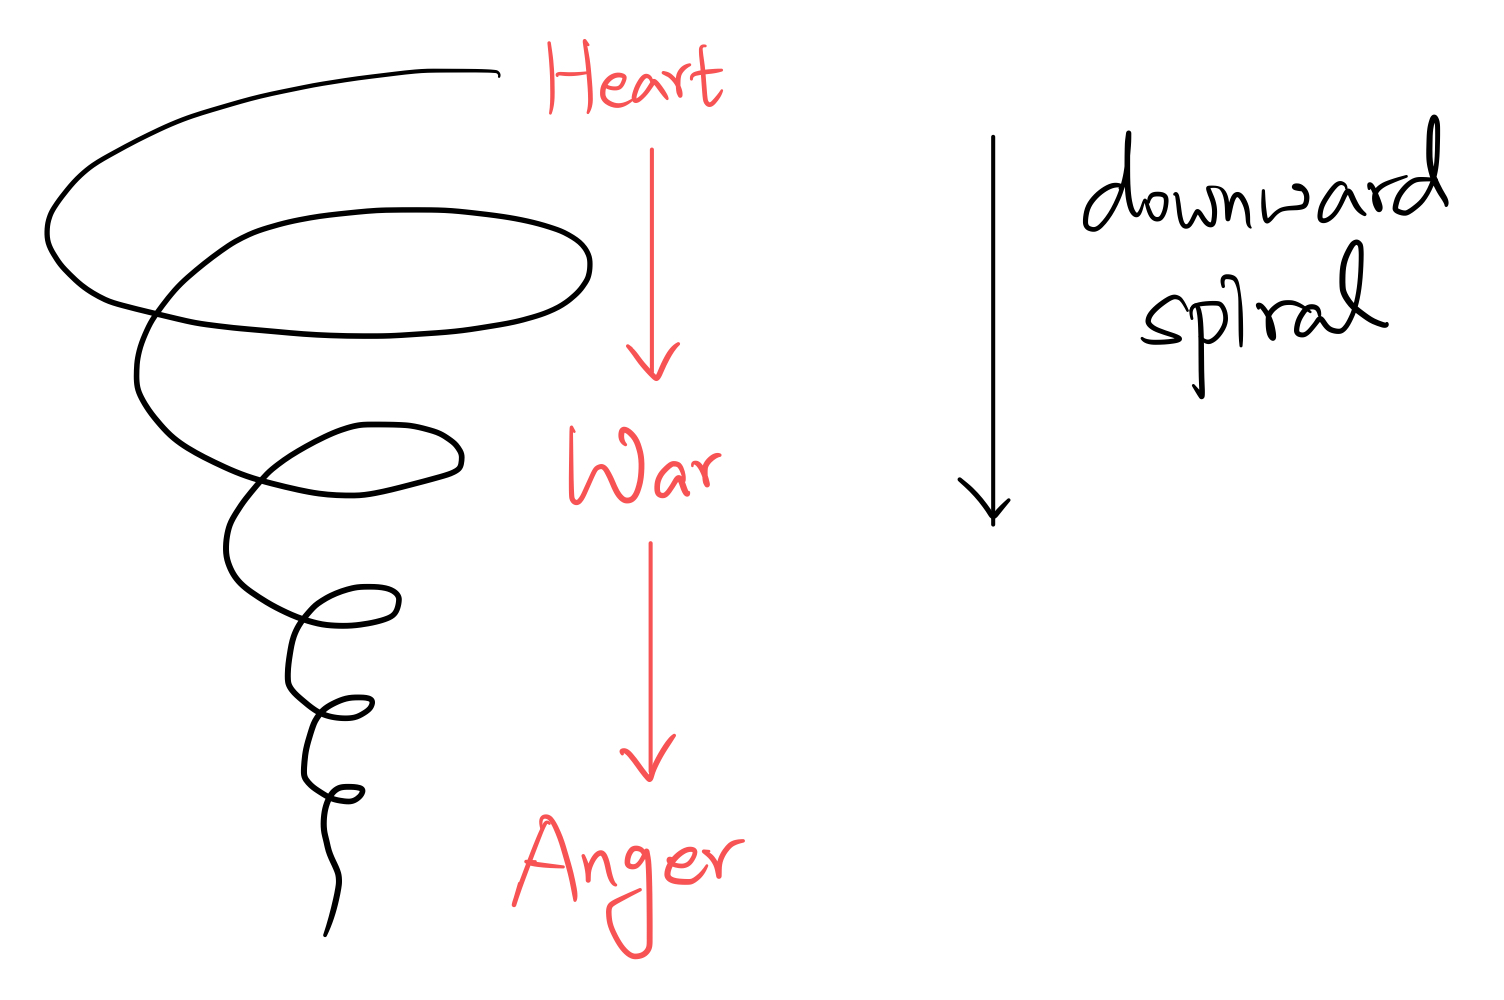 Heart
War
Anger
downward
spiral